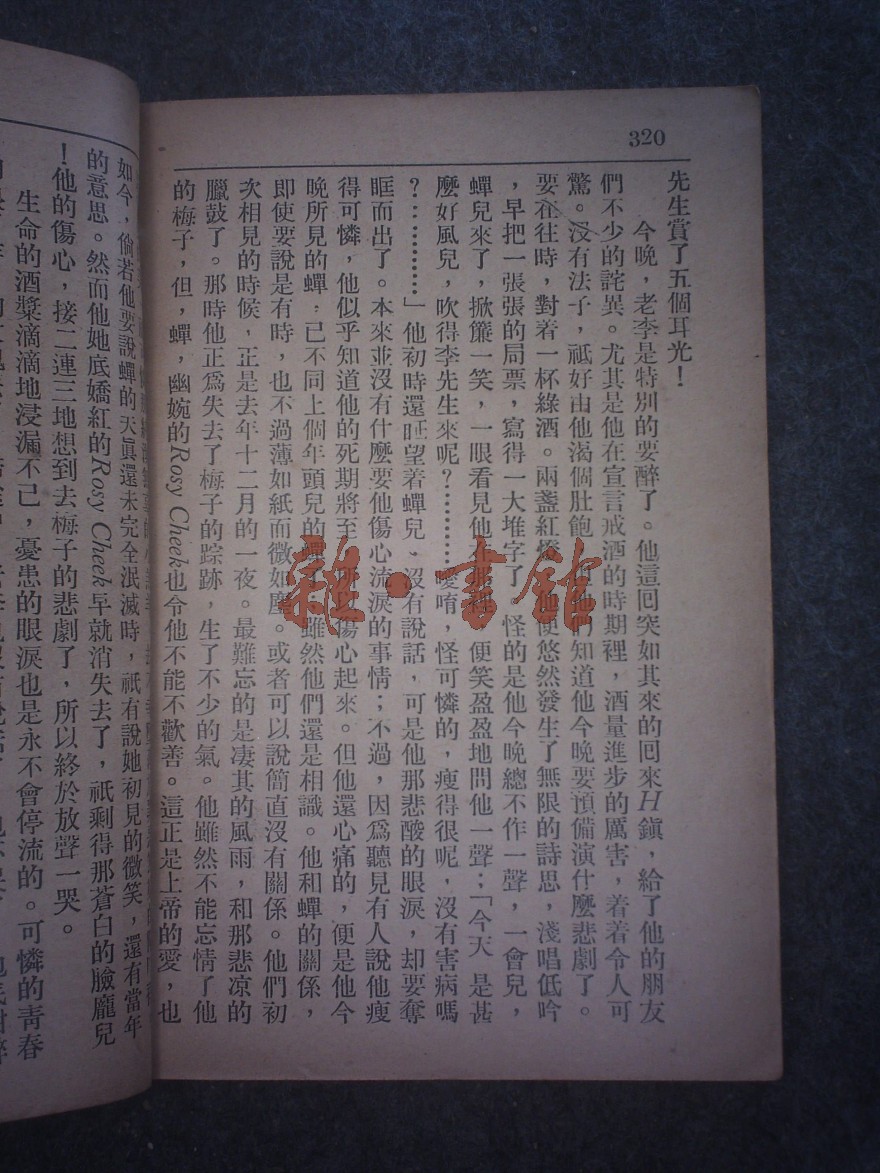 320
先生賞了五個耳光！
今晚，老李是特別的要醉了。他這囘突如其來的囘來H鎭，給了他的朋友
們不少的詫異。尤其是他在宣言戒酒的時期裡，酒量進步的厲害，着着令人可
驚。沒有法子，祗好由他渴個肚飽，他們知道他今晚要預備演什麼悲劇了。
要在往時，對着一杯綠酒。兩盞紅燈，他便悠然發生了無限的詩思，淺唱低吟
，早把一張張的局票，寫得一大堆字了，怪的是他今晚總不作一聲，一會兒，
蟬兒來了，掀簾一笑，一眼看見他在那裡，便笑盈盈地問他一聲；「今天 是甚
麼好風兒，吹得李先生來呢？…………噯唷，怪可憐的，瘦得很呢，沒有害病嗎
？…………」他初時還眐望着蟬兒、沒有說話，可是他那悲酸的眼淚，却要奪
眶而出了。本來並沒有什麼要他傷心流淚的事情；不過，因爲聽見有人說他瘦
得可憐，他似乎知道他的死期將至，所以傷心起來。但他還心痛的，便是他今
晚所見的蟬，已不同上個年頭兒的蟬了，雖然他們還是相識。他和蟬的關係，
即使要說是有時，也不過薄如紙而微如塵。或者可以說簡直沒有關係。他們初
次相見的時候，正是去年十二月的一夜。最難忘的是凄其的風雨，和那悲凉的
臘鼓了。那時他正爲失去了梅子的踪跡，生了不少的氣。他雖然不能忘情了他
的梅子，但，蟬，幽婉的Rosy Cheek也令他不能不歡善。這正是上帝的愛，也
如今，倘若他要說蟬的天眞還未完全泯滅時，祇有說她初見的微笑，還有當年
的意思。然而他她底嬌紅的Rosy Cheek早就消失去了，祇剩得那蒼白的臉龐兒
！他的傷心，接二連三地想到去梅子的悲劇了，所以終於放聲一哭。
生命的酒漿滴滴地浸漏不已，憂患的眼淚也是永不會停流的。可憐的靑春
雜·書館